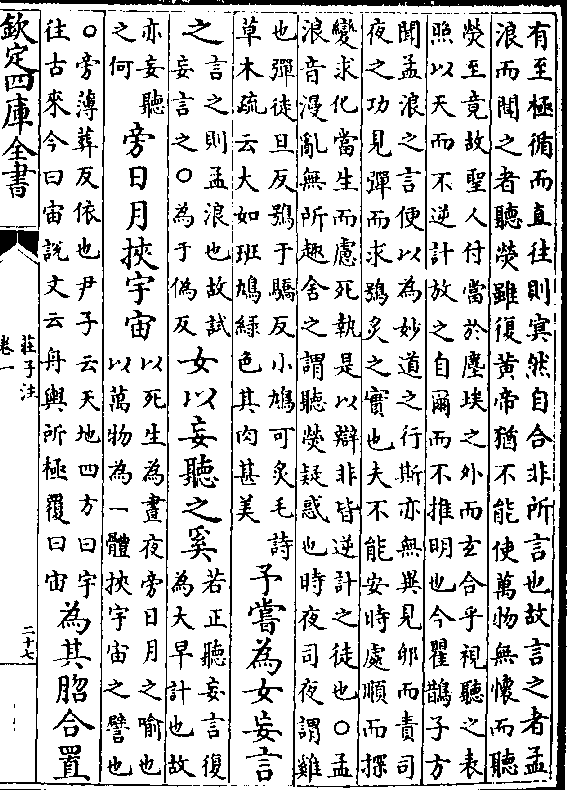 有至極循而直往則冥然自合非所言也故言之者孟
浪而聞之者聽熒雖復黃帝猶不能使萬物無懷而聽
熒至竟故聖人付當於塵埃之外而玄合乎視聽之表
照以天而不逆計放之自爾而不推明也今瞿鵲子方
聞孟浪之言便以為妙道之行斯亦無異見卵而責司
夜之功見彈而求鴞炙之實也夫不能安時處順而探
變求化當生而慮死執是以辯非皆逆計之徒也○孟
浪音漫亂無所趣舍之謂聽熒疑惑也時夜司夜謂雞
也彈徒旦反鴞于驕反小鳩可炙毛詩
草木疏云大如班鳩綠色其肉甚美
子嘗為女妄言
之
言之則孟浪也故試
妄言之○為于偽反
女以妄聽之奚
若正聽妄言復
為大早計也故
亦妄聽
之何
旁日月挾宇宙
以死生為晝夜旁日月之喻也
以萬物為一體挾宇宙之譬也
○旁薄葬反依也尹子云天地四方曰宇
往古來今曰宙說文云舟輿所極覆曰宙
為其脗合置
欽定四庫全書
莊子注
卷一
二十七